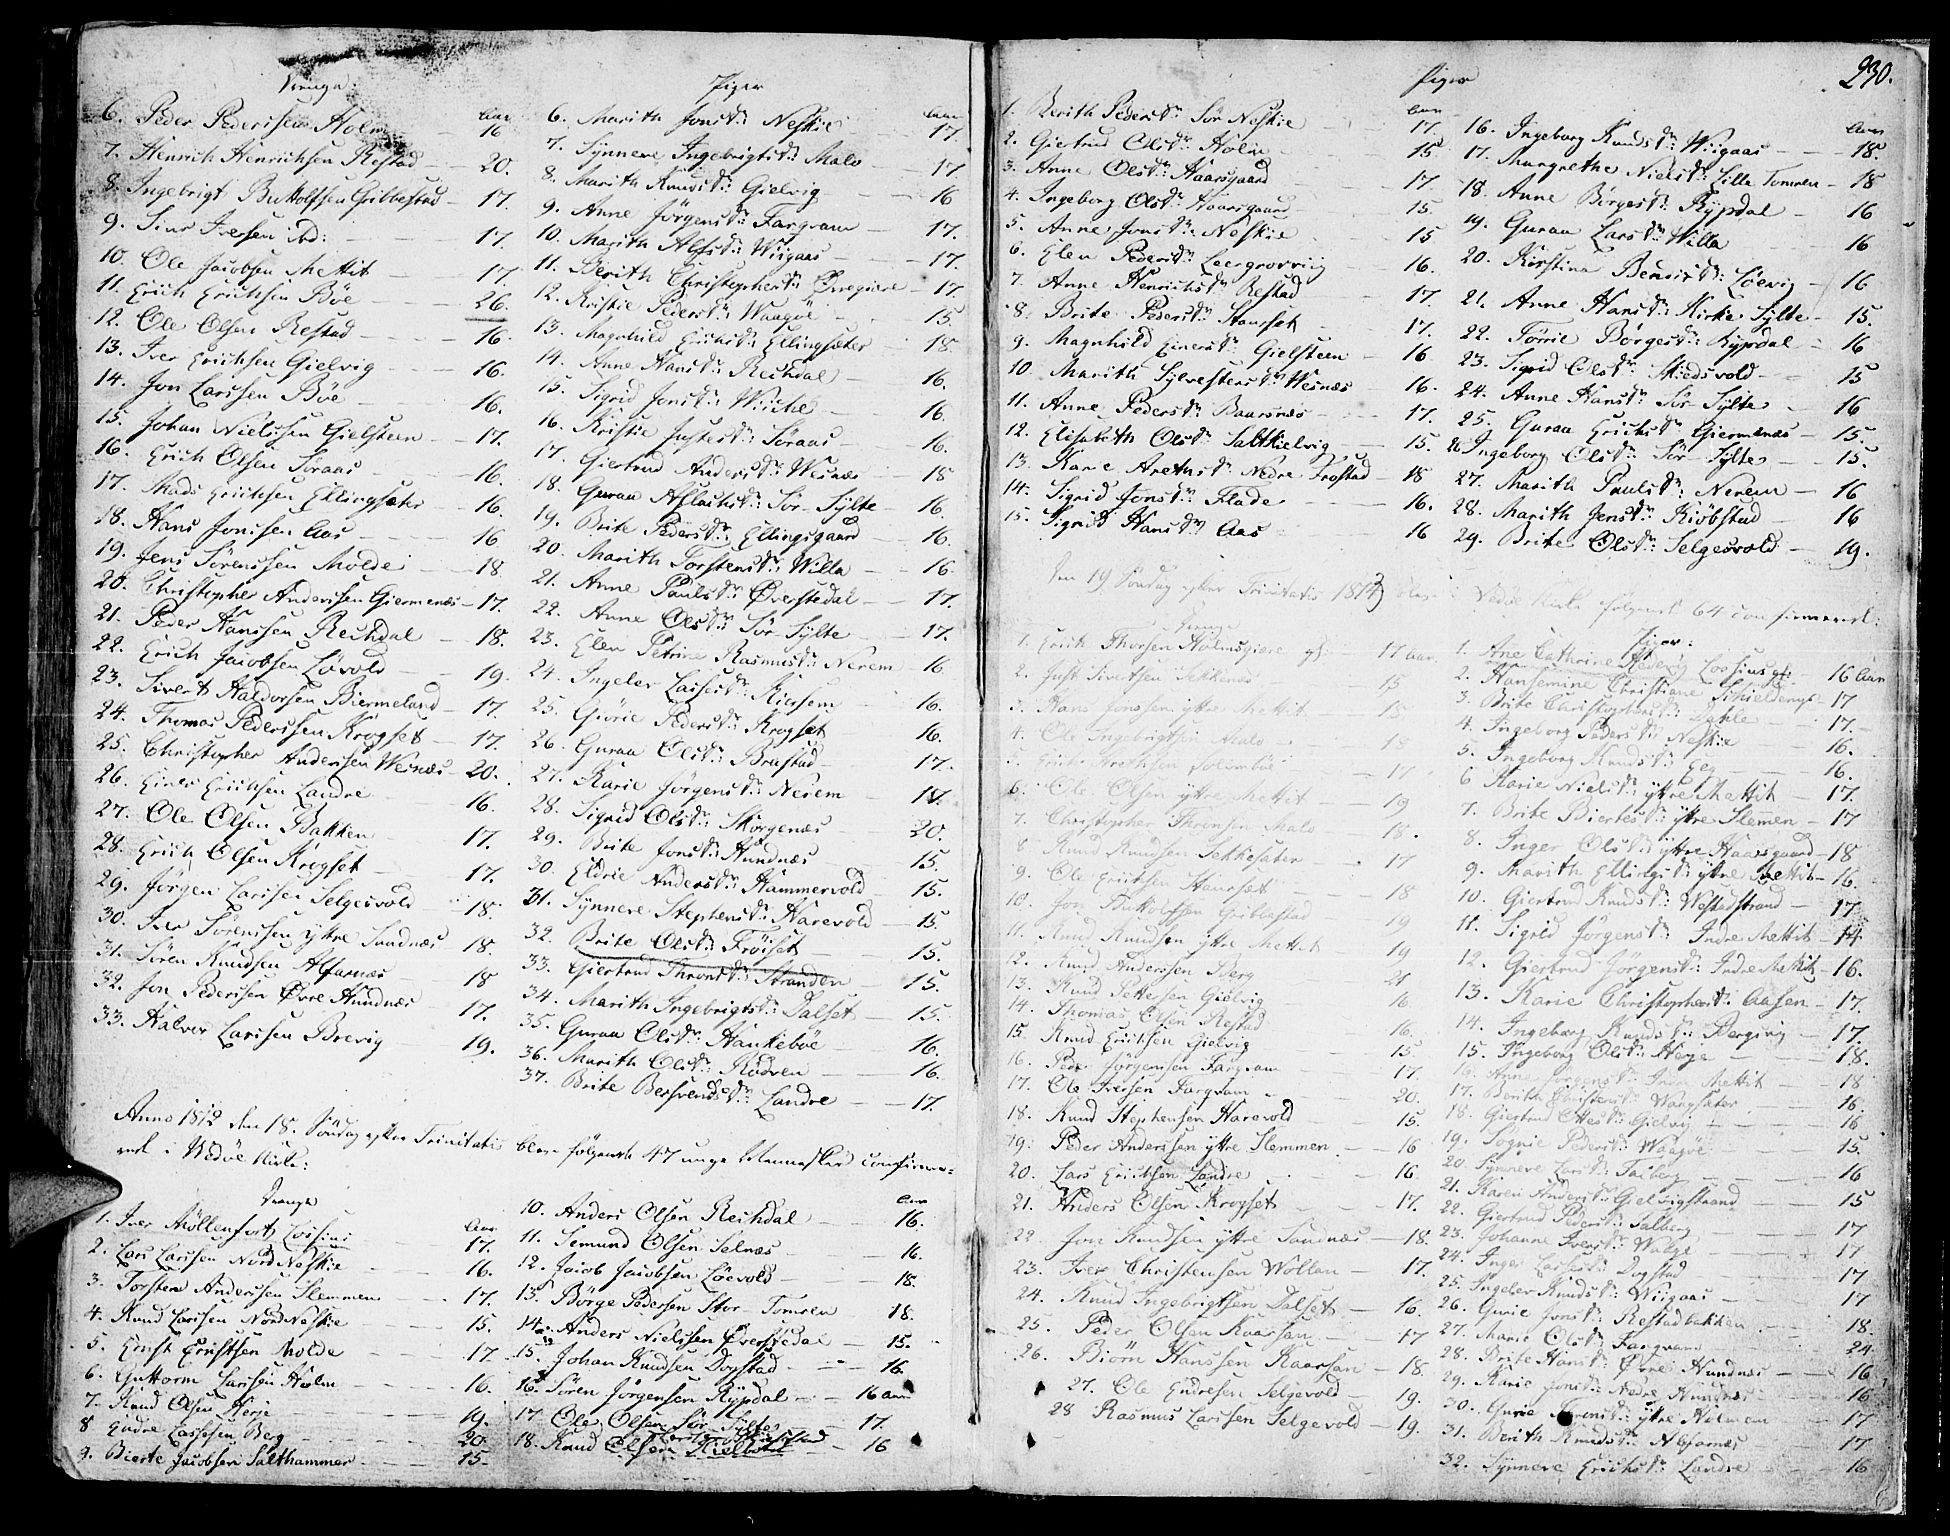 230.
Drenge: Aar
6. Peder Pedersen Holm 16
7. Henrich Henrichsen Restad 20.
8. Ingebrigt Buttolfsen Gribbestad 17.
9. Siur Iversen ibd: 17.
10. Ole Jacobsen Mettit 17.
11. Erich Erichsen Böe 26.
12. Ole Olsen Restad 16.
13. Iver Erichsen Gielvig 16.
14. Jon Larssen Böe 16.
15. Johan Nielssen Gielsteen 17.
16. Erich Olsen Söraas 16.
17. Mads Erichsen Ellingsæter 16.
18. Hans Jonssen Aas 16
19. Jens Sörenssen Molde 18
20. Christopher Anderssen Giermenæs 17.
21. Peder Hanssen Rechdal 18.
22. Erich Jacobsen Lövold 19.
23. Sivert Haldorsen Biermeland 17.
24. Thomas Pederssen Krogset 17.
25. Christopher Anderssen Wesnæs 20.
26. Einer Erichsen Landre 16.
27. Ole Olsen Bakken 17.
28. Erich Olsen Krogset 17.
29. Jörgen Larssen Selgesvold 18.
30. Iver Sörenssen yttre Sandnæs 18.
31. Sören Knudsen Alfarnæs 18
32. Jon Pederssen Övre Hundnæs 17.
33. Halvor Larssen Brevig 19.
Piger Aar
6. Marith Jonsdr: Neskie 17.
7. Synneve Ingebrigtsdr: Malo 17.
8. Marith Knudsdr: Gielvig 16
9. Anne Jörgensdr: Fargvam 17.
10. Marith Alfsdr: Wiigaas 17.
11. Berith Christophersdr: Öregiere 17.
12. Kristie Pedersdr: Waagöe 15.
13. Magnhild Erichsdr: Ellingsæter 18.
14. Anne Hansdr: Rechdal 16.
15. Sigrid Jonsdr: Wiiche 16.
16. Kristie Justesdr: Söraas 16.
17. Giertrud Andersdr: Wesnæs 18
18. Guraa Aslachsdr: Sör-Sylte 16.
19. Brite Pedersdr: Ellingsgaard 16.
20. Marith Torstensdr: Willa 16.
21. Anne Paulsdr: Överstedal 17.
22. Anne Olsdr: Sör-Sylte 17.
23. Elen Petrine Rasmusdr: Nerem 16
24. Ingeler Lassesdr: Kiersem 16.
25. Giörie Pedersdr: Krogset 16.
26. Guraa Olsdr: Brustad 17.
27. Karie Jörgensdr: Nerem 17.
28. Sigrid Olsdr: Skorgenæs 20.
29. Brite Jonsdr: Hundnæs 15.
30. Eldrie Andersdr: Hammervold 15.
31. Synneve Stephensdr: Harevold 15.
32. Brite Olsdr: Fröiset 15.
33. Giertrud Thronsdr: Stranden 15.
34. Marith Ingebrigtsdr: Dalset 15.
35. Guraa Olsdr: Haukeböe 16.
36. Marith Olsdr: Rödven 16.
37. Brite Bersvendsdr: Landre 17.
Anno 1812 den 18. Söndag efter Trinitatis bleve fölgende 47 unge Mennesker confirme-
rede i Wedöe Kirke:
Drenge Aar
1. Iver Möllenfort Lossius 17.
2. Lars Larssen Nord Neskie 16.
3. Torsten Anderssen Slemmen 17.
4. Knud Larssen Nord Neskie 15.
5. Ernst Ernstsen Molde 17.
6. Guttorm Larssen Holm 16.
7. Knud Olsen Herje 19.
8 Endre Lassesen Berg 20.
9. Bierte Jacobsen Salthammer 15.
Aar
10. Anders Olsen Rechdal 16.
11. Semund Olsen Selnæs 16.
12. Jacob Jacobsen Löevold 18.
13. Börge Pedersen Stor-Tomren 18.
14. Anders Nielssen Överstedal 15.
15. Johan Knudsen Dogstad 16.
16. Sören Jörgensen Rypdal 16 aar
17 Ole Olsen Sör-Sylte 17.
18. Knud Olsen 16
Piger
Aar
1. Berith Pedersdr: Sör Neskie 17.
2. Giertrud Olsdr: Holm 15
3. Anne Olsdr: Haarsgaard 17.
4. Ingeborg Olsdr: Haarsgaard 15.
5. Anne Jonsdr: Neskie 15
6. Elen Pedersdr: Leergrovviig 16.
7. Anne Henrichsdr: Restad 17.
8. Brite Pedersdr: Staurset 17.
9. Magnhild Einersdr: Gielsteen 16
10. Marith Sylvestersdr: Wesnæs 16.
11. Anne Pedersdr: Baarsnæs 17.
12. Elisabeth Olsdr: Saltkielvig 15.
13. Karie Arethsdr: Nedre Frostad 18
14. Sigrid Jonsdr: Flade 16.
15. Sigrid Hansdr: Aas 16
Aar
16. Ingeborg Knudsdr: Wiigaas 18.
17. Margrethe Nielsdr: Lille Tomren 18
18. Anne Börgesdr: Rypdal 16
19. Guraa Larsdr: Willa 16
20. Kirstina Bentsdr: Löevig 16
21. Anne Hansdr: Kirke Sylte 15.
22. Törrie Börgesdr: Rypdal 16
23. Sigrid Olsdr: Skiedsvold 15
24. Anne Hansdr: Sör-Sylte 16
25. Guraa Erichsdr: Giermenæs 15.
26 Ingeborg Olsdr: Sör-Sylte 15.
27. Marith Paulsdr: Nerem 16
28. Marith Jensdr: Kiöbstad 16
29. Brite Olsdr: Selgesvold 19.
Den 19 Söndag efter Trinitatis 1813 bleve i Vedöe Kirke fölgende 64 confirmerede:
Drenge
1. Erich Thorsen Holmsgiere 17 Aar
2. Just Sivertsen Sekkenæs 15
3. Hans Jonssen yttre Mettit 18
4. Ole Ingebrigtsen Malo 18
5. 17
6. Ole Olsen yttre Mettit 19
7. Christopher Thronsen Malo 18.
8 Knud Knudsen Sekkesæter 17
9. Ole Erichsen Staurset 18
10. Jon Buttolfsen Gribbestad 19
11. Knud Knudsen yttre Mettit 19
12. Knud Anderssen Berg 21
13. Knud Pettersen Gielvig 16
14. Thomas Olsen Restad 16.
15. Knud Erichsen Gielvig 15.
16. Peder Jörgensen Fargvam 17.
17. Ole Iversen Fargvam 20.
18. Knud Stephensen Harevold 15.
19. Peder Anderssen yttre Slemmen 16
20. Lars Erichsen Landre 16
21. Anders Olsen Krogset 17.
22. Jon Knudsen yttre Sandnæs 18.
23. Iver Christensen Wollan 17.
24. Knud Ingebrigtsen Dalset 16.
25. Peder Olsen Kaarsan 17
26. Biörn Hanssen Kaarsan 18.
27. Ole Endresen Selgevold 19.
28 Rasmus Larssen Selgevold 19.
Piger:
1. Ane Cathrine Hedevig Lossius 16 Aar
2. Hansemine Christiane Schielderup 17
3. Brite Christophersdr: Dahle 17.
4. Ingeborg Pedersdr: Neskie 16.
5. Ingeborg Knudsdr: Eeg 16.
6 Karie Nielsdr: yttre Mettit 17.
7. Brite Biertesdr: yttre Slemen 17
8. Inger Olsdr: yttre Haarsgaard 18
9. Marith Ellingsdr: yttre Mettit 16.
10. Giertrud Knudsdr: Westadstrand 17
11. Sigrid Jörgensdr: Indre Mettit 14.
12. Giertrud Jörgensdr: Indre Mettit 16.
13. Karie Christophersdr: Aasen 17.
14. Ingeborg Knudsdr: Bergsvig 17.
15. Ingeborg Olsdr: Herje 18.
16. Anne Jörgensdr: Indre Mettit 18
17. Berith Christensdr: Waagsæter 16.
18. Giertrud Ottesdr: Gielvig 16
19. Sognie Pedersdr: Waagöe 15
20. Synneve Larsdr: Talberg 16
21. Karen Andersdr: Gielvigstrand 15
22. Giertrud Pedersdr: Salberg 17
23. Johanne Iversdr: Walge 17
24. Inger Larssdr: Dogstad 17
25. Ingeler Knudsdr: Wiigaas 17
26. Gurie Jonsdr: Restadbakken 18.
27. Marie Olsdr: Fargvam 24.
28. Brite Hansdr: Övre Hundnæs 16
29. Karie Jonsdr: Nedre Hundnæs 16
30. Gurie yttre Holmem 17
31. Berith Knudsdr: Alfarnæs 17
32. Synneve Erichsdr: Landre 16